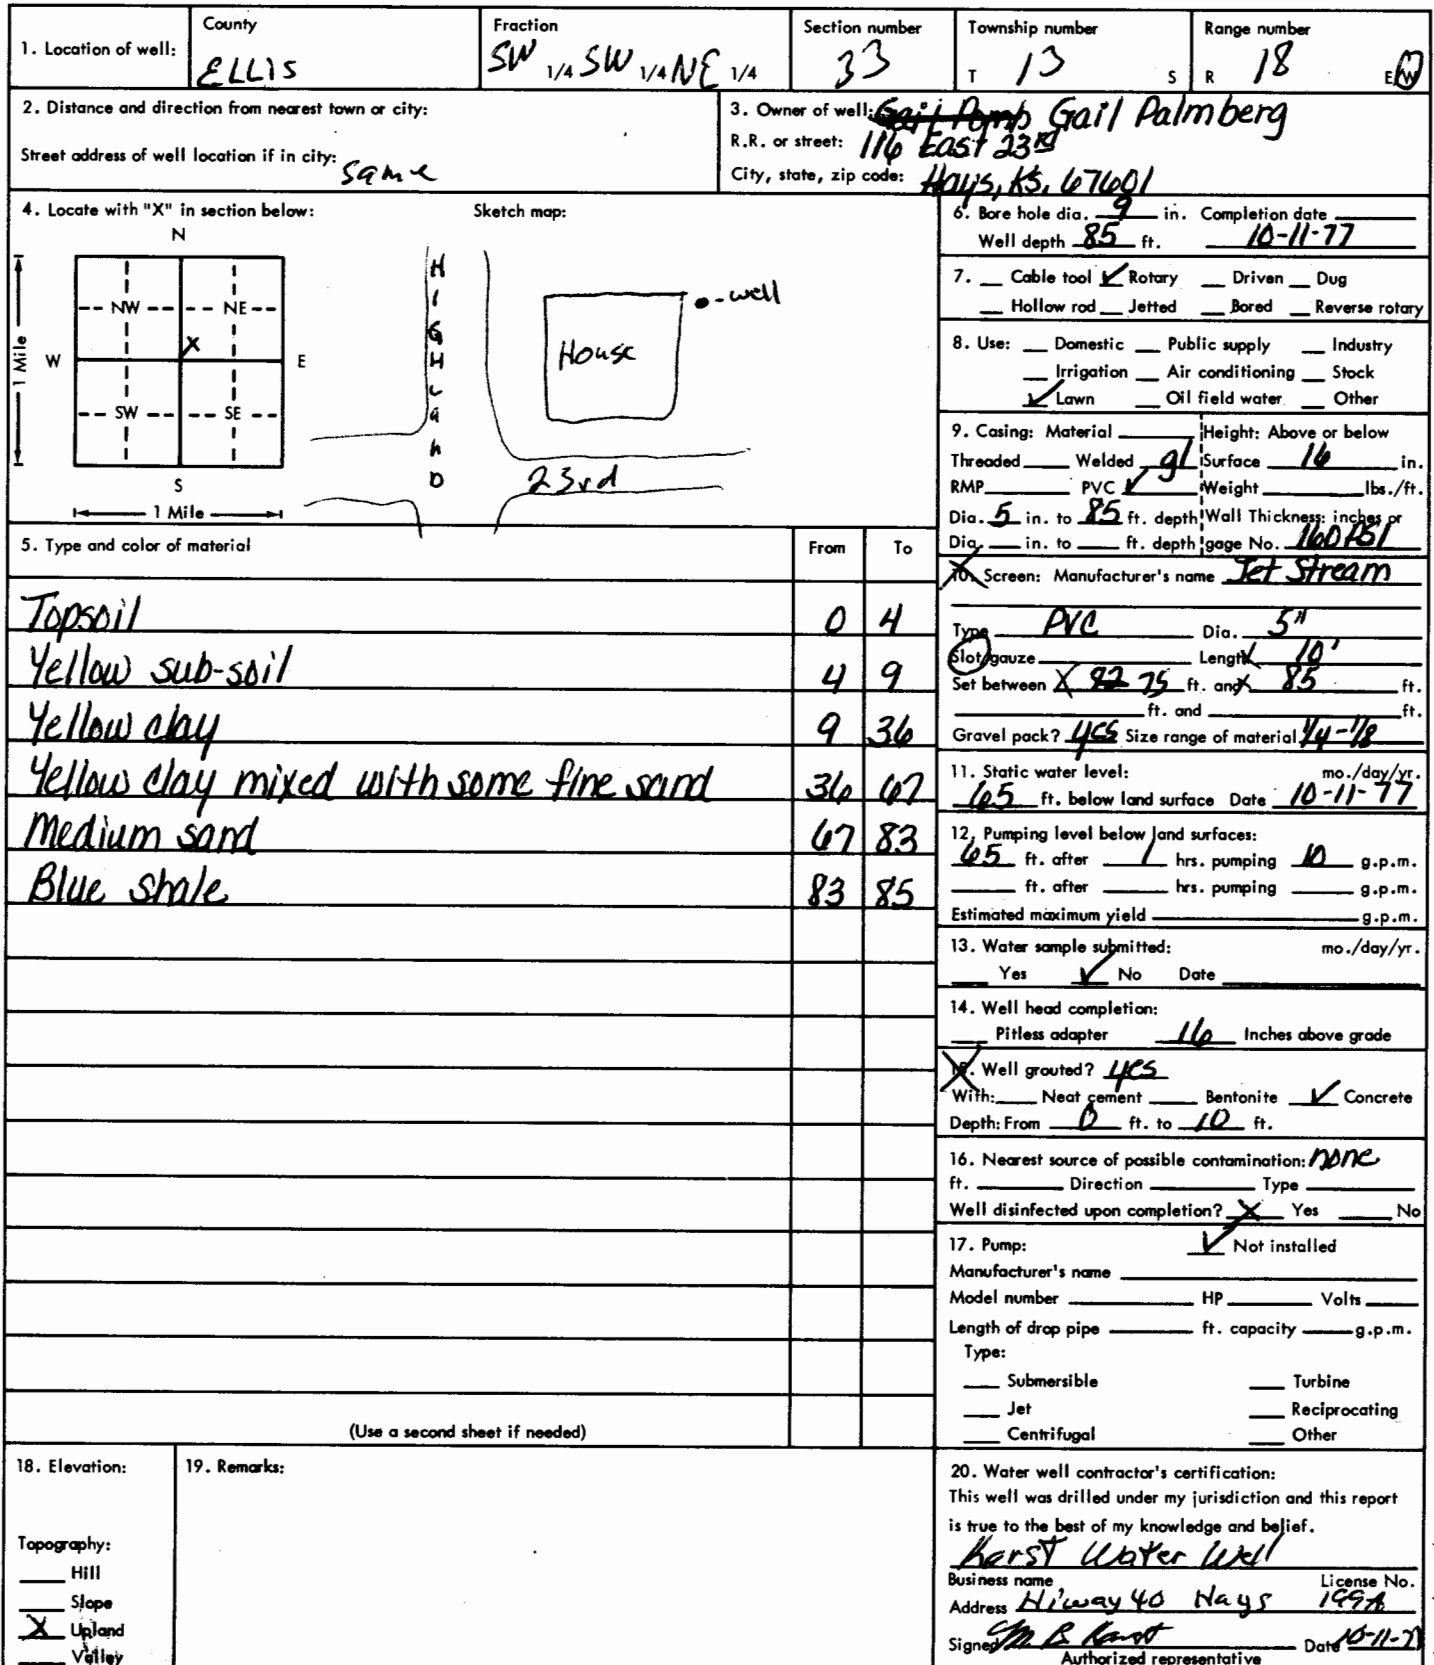 1. Location of well: County ELLIS Fraction SW 1/4 SW 1/4 NE 1/4 Section number 33 Township number T 13 S Range number R 18 E/W
2. Distance and direction from nearest town or city:
Street address of well location if in city: same
3. Owner of well: Gail Pomb Gail Palmberg
R.R. or street: 116 East 23rd
City, state, zip code: Hays, KS. 67601
4. Locate with "X" in section below:
N
NW NE
X
W E
SW SE
S
1 Mile
1 Mile
Sketch map:
HIGHLanD
House
- well
23rd
5. Type and color of material From To
Topsoil 0 4
Yellow sub-soil 4 9
Yellow clay 9 36
Yellow clay mixed with some fine sand 36 67
Medium sand 67 83
Blue shale 83 85
(Use a second sheet if needed)
6. Bore hole dia. 9 in. Completion date
Well depth 85 ft. 10-11-77
7. Cable tool ✓ Rotary Driven Dug
Hollow rod Jetted Bored Reverse rotary
8. Use: Domestic Public supply Industry
Irrigation Air conditioning Stock
✓ Lawn Oil field water Other
9. Casing: Material Height: Above or below
Threaded Welded gl Surface 16 in.
RMP PVC ✓ Weight lbs./ft.
Dia. 5 in. to 85 ft. depth Wall Thickness: inches or
Dia. in. to ft. depth gage No. 160 PSI
10. Screen: Manufacturer's name Jet Stream
Type PVC Dia. 5"
Slot/gauze Length 10'
Set between X 82 75 ft. and X 85 ft.
ft. and ft.
Gravel pack? yes Size range of material 1/4-1/8
11. Static water level: mo./day/yr.
65 ft. below land surface Date 10-11-77
12. Pumping level below land surfaces:
65 ft. after 1 hrs. pumping 10 g.p.m.
ft. after hrs. pumping g.p.m.
Estimated maximum yield g.p.m.
13. Water sample submitted: mo./day/yr.
Yes ✓ No Date
14. Well head completion:
Pitless adapter 16 Inches above grade
15. Well grouted? yes
With: Neat cement Bentonite ✓ Concrete
Depth: From 0 ft. to 10 ft.
16. Nearest source of possible contamination: none
ft. Direction Type
Well disinfected upon completion? X Yes No
17. Pump: ✓ Not installed
Manufacturer's name
Model number HP Volts
Length of drop pipe ft. capacity g.p.m.
Type:
Submersible Turbine
Jet Reciprocating
Centrifugal Other
18. Elevation:
Topography:
Hill
Slope
X Upland
Valley
19. Remarks:
20. Water well contractor's certification:
This well was drilled under my jurisdiction and this report
is true to the best of my knowledge and belief.
Karst Water Well
Business name License No.
Address Hi'way 40 Hays 199A
Signed M B Karst Date 10-11-77
Authorized representative